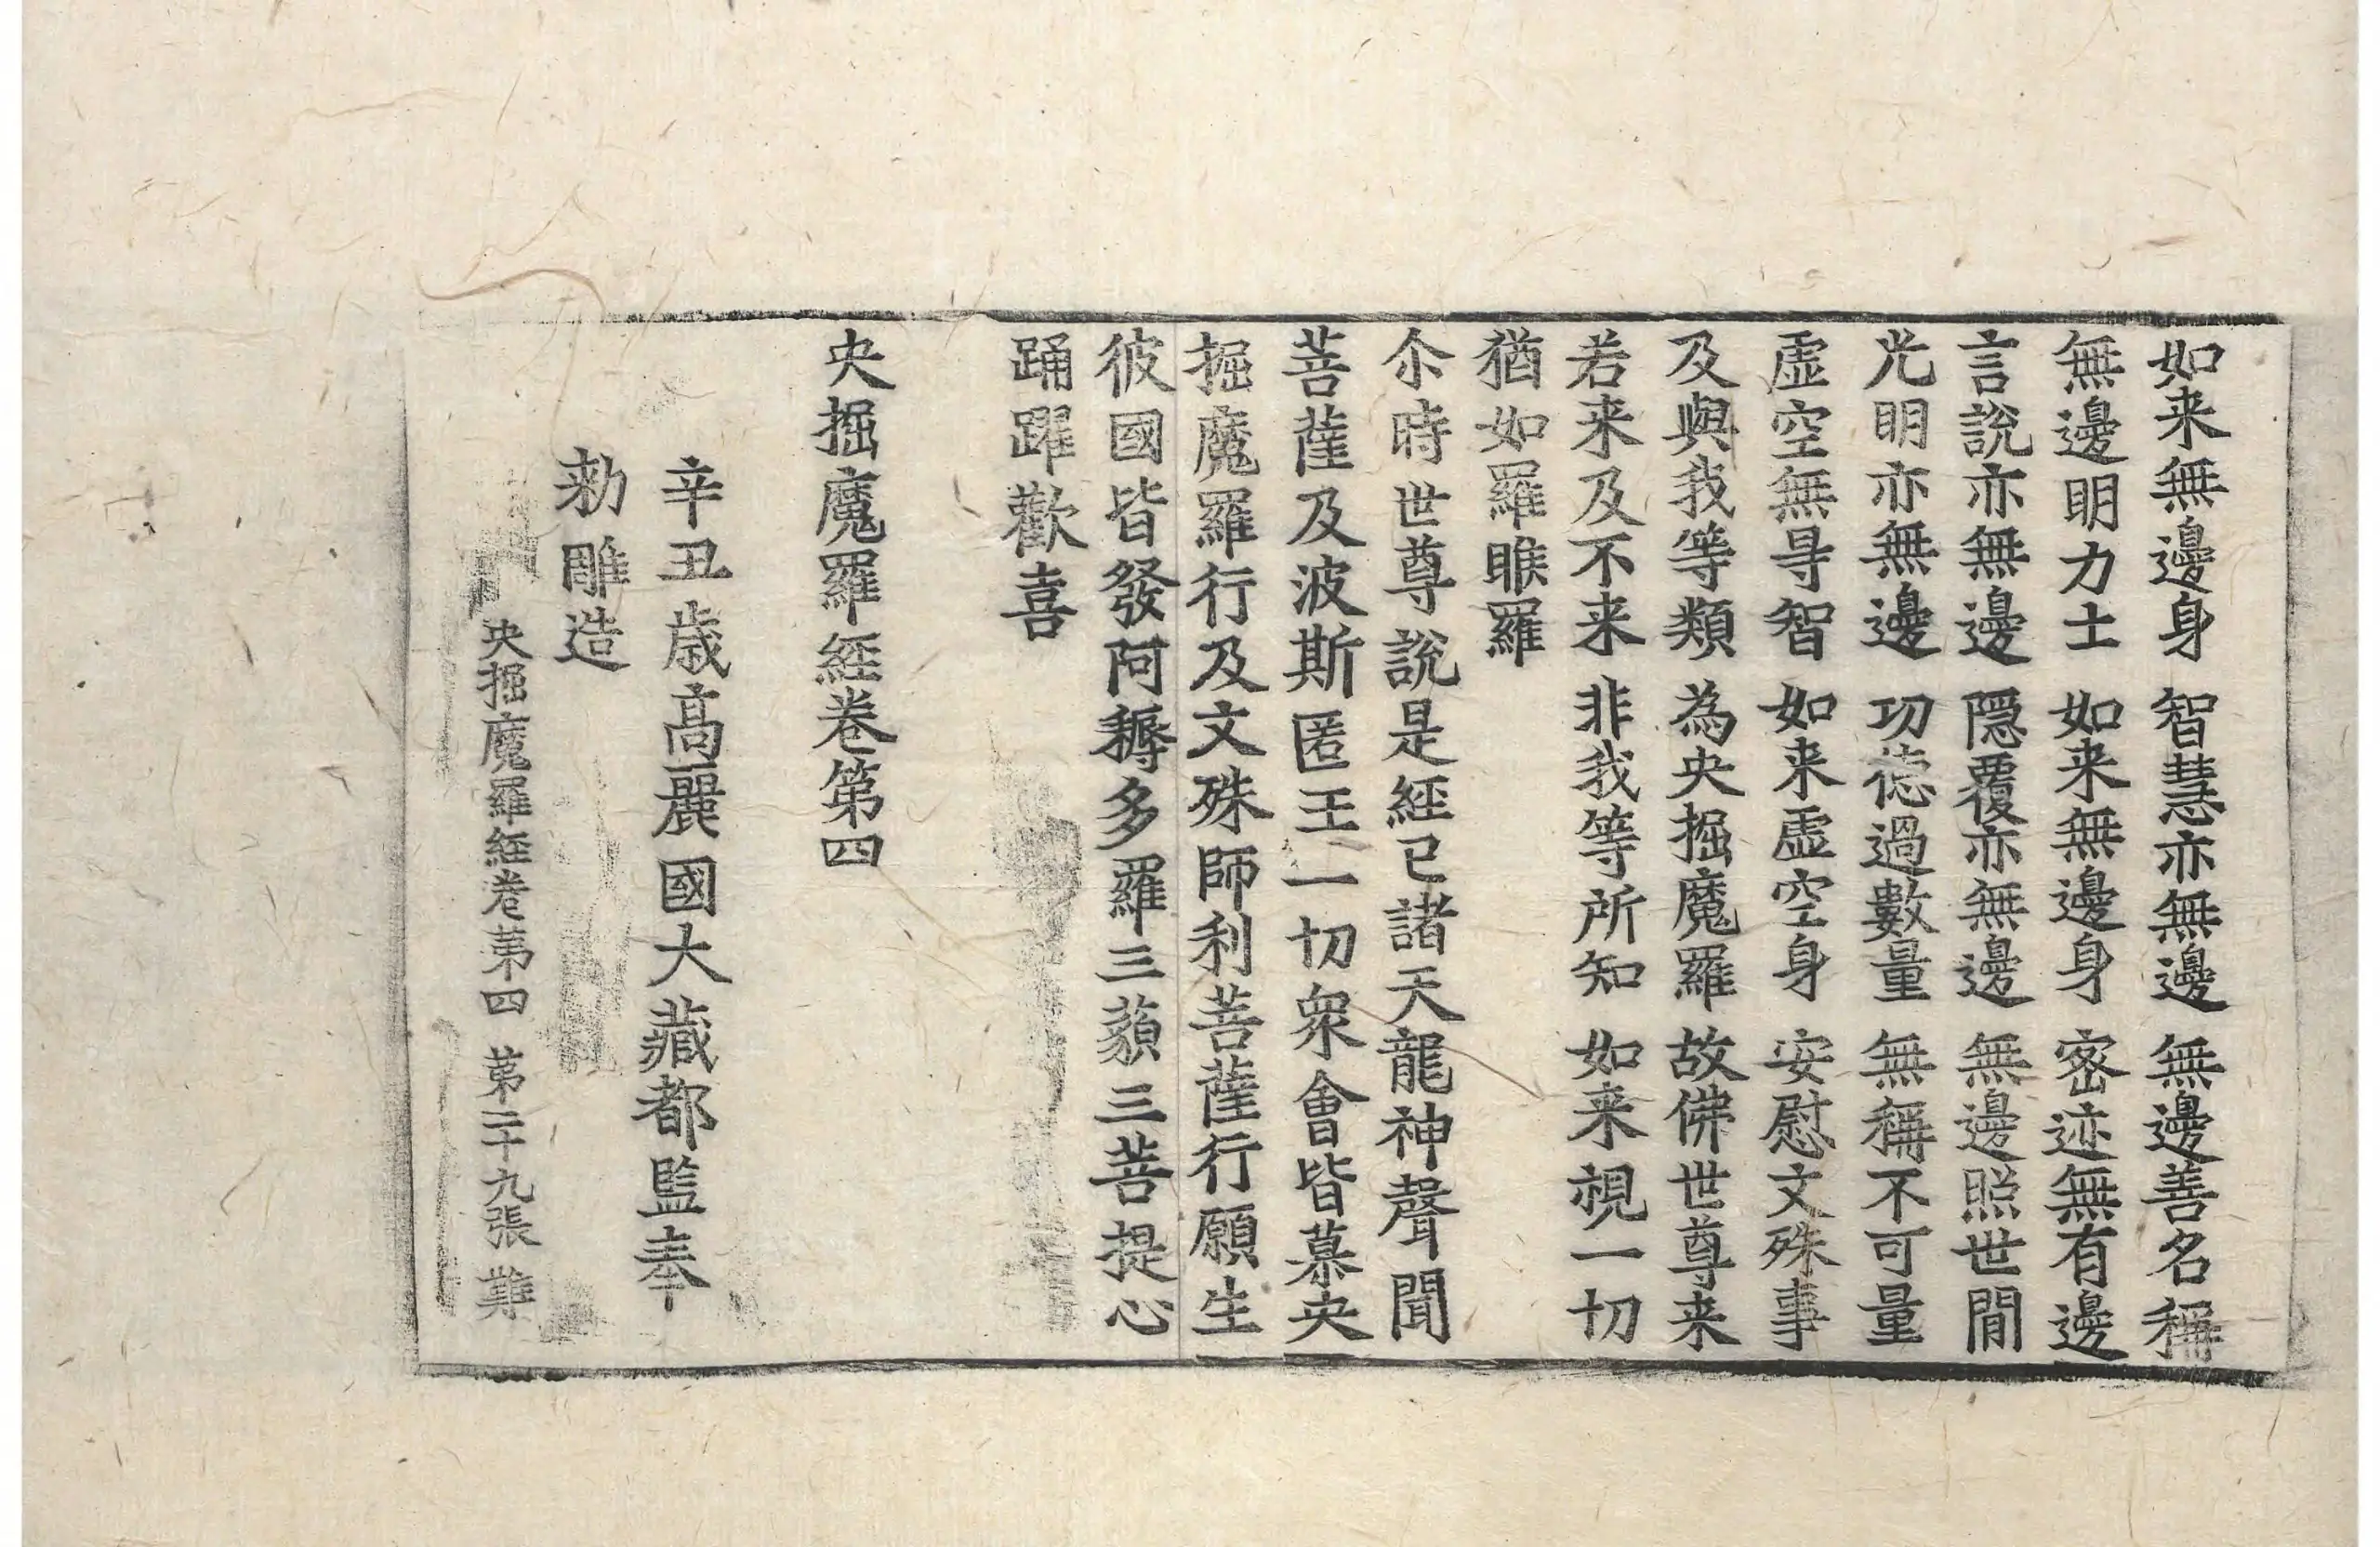 如来無邊身 智慧亦無邊 無邊善名稱
無邊明力士 如来無邊身 密迹無有邊
言說亦無邊 隱覆亦無邊 無邊照世間
光明亦無邊 功德過數量 無稱不可量
虛空無㝵智 如来虛空身 安慰文殊事
及與我等類 為央掘魔羅 故佛世尊来
若来及不来 非我等所知 如来視一切
猶如羅睺羅
尒時世尊說是經已諸天龍神聲聞
菩薩及波斯匿王一切眾會皆慕央
掘魔羅行及文殊師利菩薩行願生
彼國皆發阿耨多羅三藐三菩提心
踊躍歡喜
央掘魔羅經卷第四
辛丑歲高麗國大藏都監奉
勑雕造
央掘魔羅經卷第四 第二十九張 難